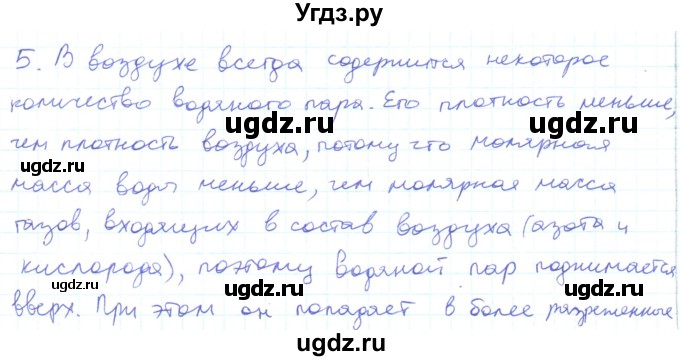 Угдз.ру
5. В воздухе всегда содержится некоторое
количество водяного пара. Его плотность меньше,
чем плотность воздуха, потому что молярная
масса воды меньше, чем молярная масса
газов, входящих в состав воздуха (азота и
кислорода), поэтому водяной пар поднимается
вверх. При этом он попадает в более разреженные
ugdz.ru
ugdz.ru
ugdz.ru
ugdz.ru
ugdz.ru
ugdz.ru
ugdz.ru
ugdz.ru
ugdz.ru